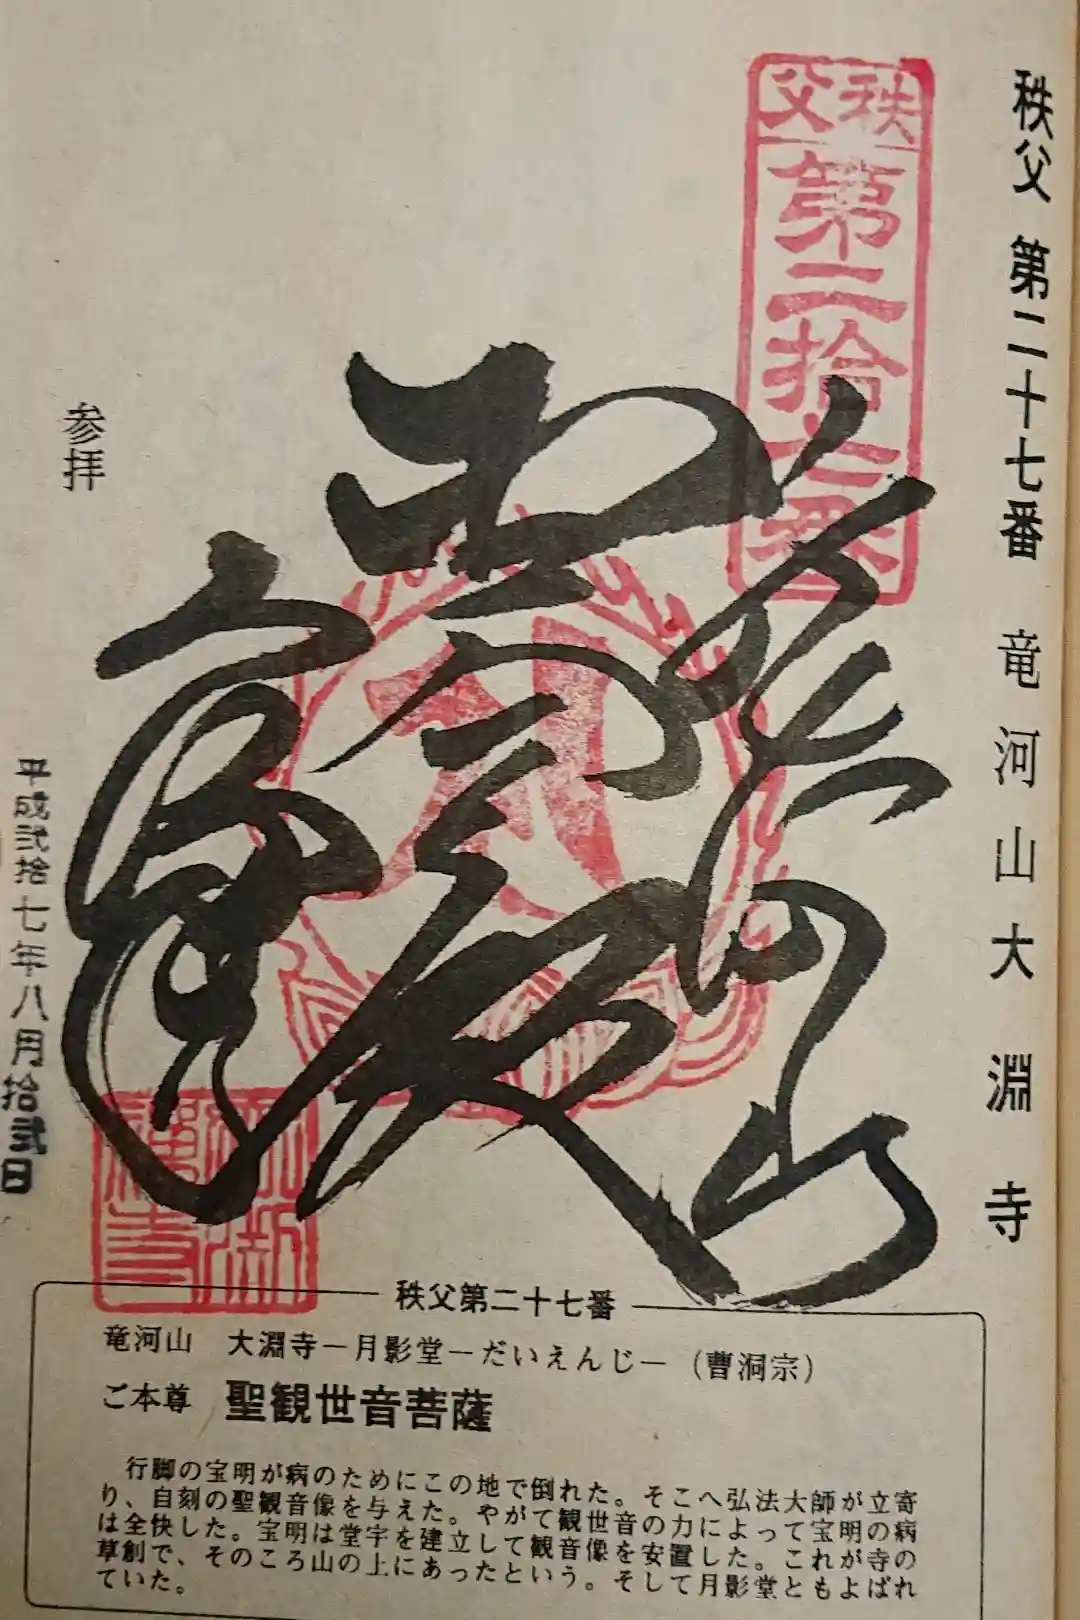 秩父 第二十七番 竜河山大淵寺
秩父
第二拾七番
参拝
平成弐拾七年八月拾弐日
秩父第二十七番
竜河山 大淵寺－月影堂－だいえんじ－(曹洞宗)
ご本尊 聖観世音菩薩
行脚の宝明が病のためにこの地で倒れた。そこへ弘法大師が立寄
り、自刻の聖観音像を与えた。やがて観世音の力によって宝明の病
は全快した。宝明は堂宇を建立して観音像を安置した。これが寺の
草創で、そのころ山の上にあったという。そして月影堂ともよばれ
ていた。